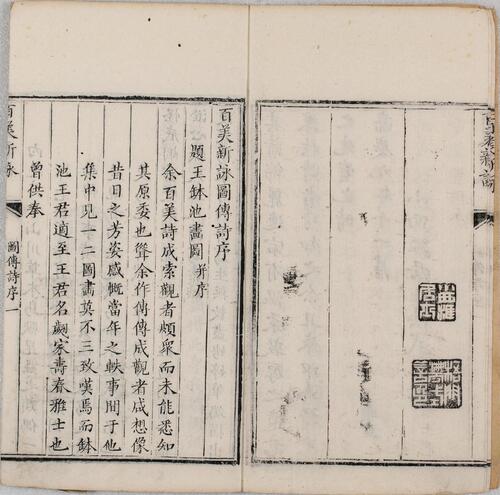 百美新詠圖傳詩序
題王鉢池畫圖 并序
余百美詩成索觀者頗衆而未能悉知
其原委也聳余作傳傳成觀者咸想像
昔日之芳姿感慨當年之軼事間于他
集中見一二圖畫莫不三致嘆焉而鉢
池王君適至王君名翽家壽春雅士也
曾供奉
百美新詠
圖傳詩序一